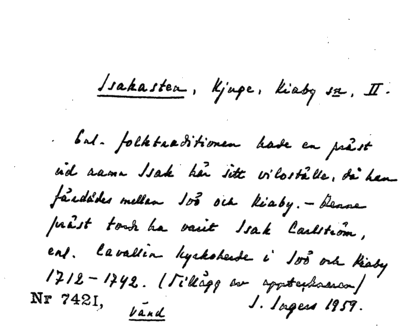 Isakasten, Kjuge, Kiaby sn, II.
Enl. folktraditionen hade en präst
vid namn Isak här sitt viloställe, då han
färdades mellan Ivö och Kiaby. – Denne
präst torde ha varit Isak Carlström,
enl. Cavallin kyrkoherde i Ivö och Kiaby
1712–1742. (Tillägg av
Nr 7421, vänd I. Ingers 1959.